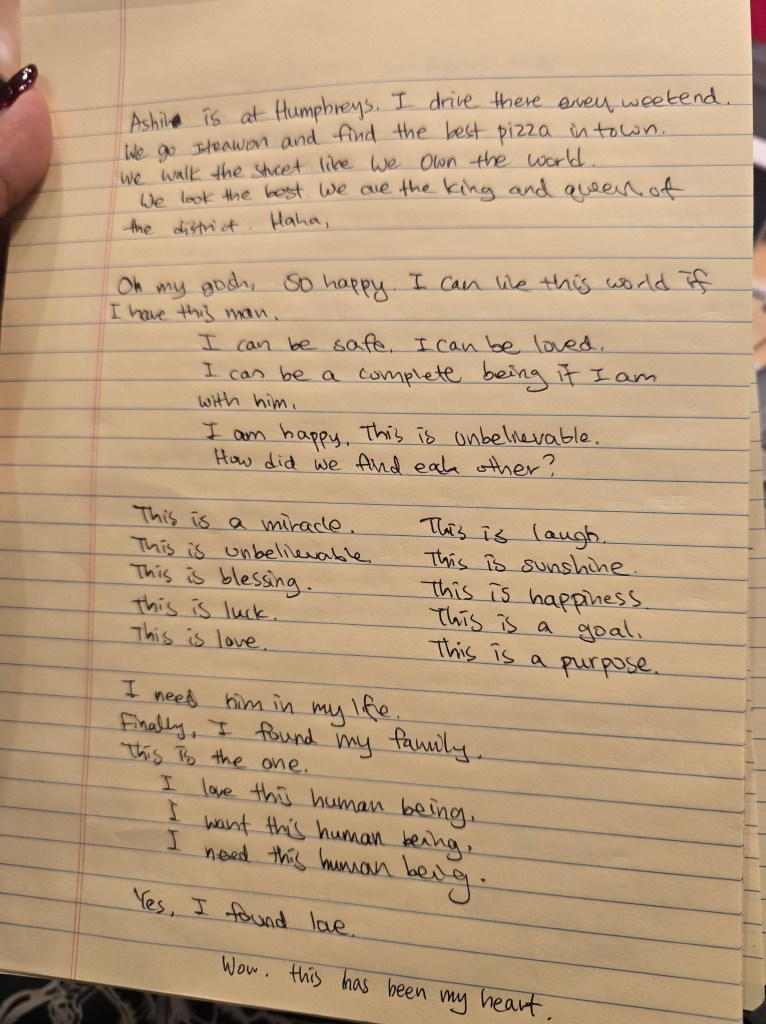 Ashihe is at Humphreys. I drive there every weekend.
We go Iteawon and find the best pizza in town.
We walk the street like we own the world.
We look the best. We are the king and queen of
the district. Haha,
Oh my gosh, so happy. I can live this world if
I have this man.
I can be safe. I can be loved.
I can be a complete being if I am
with him.
I am happy. This is unbelievable.
How did we find each other?
This is a miracle.
This is unbelievable.
This is blessing.
This is luck.
This is love.
This is laugh.
This is sunshine.
This is happiness.
This is a goal.
This is a purpose.
I need him in my life.
Finally, I found my family.
This is the one.
I love this human being.
I want this human being.
I need this human being.
Yes, I found love.
Wow. this has been my heart.